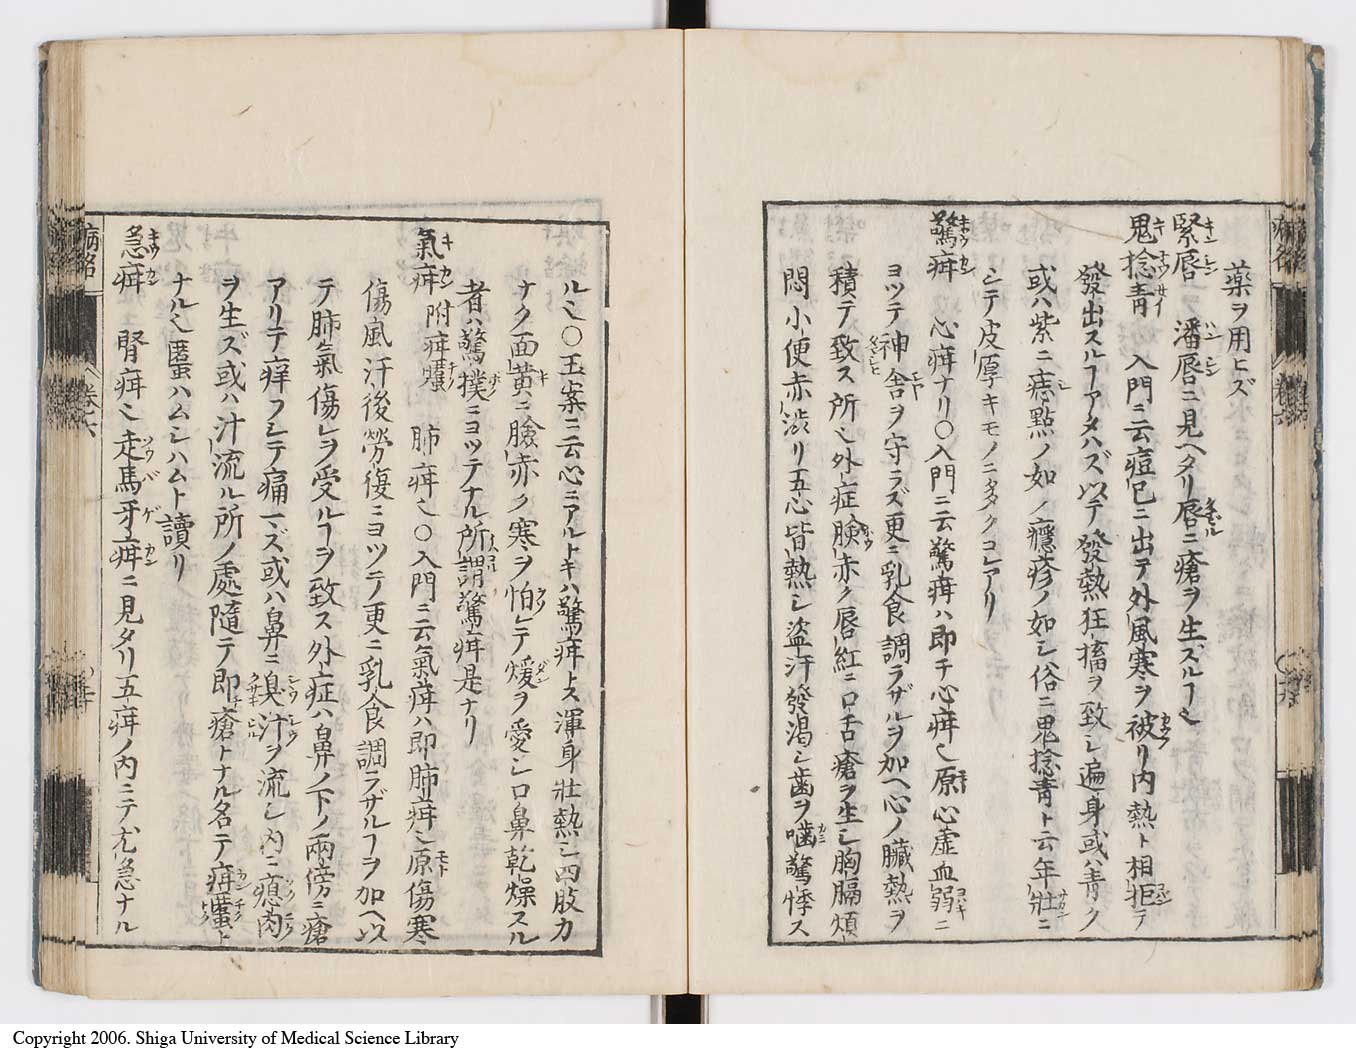 藥ヲ用ヒズ
緊唇 潘唇ニ見ヘタリ唇ニ瘡ヲ生ズルヿ也
鬼捻青 入門ニ云痘已ニ出テ外風寒ヲ被リ内熱ト相拒テ
發出スルヿアタハズ以テ發熱狂搐ヲ致シ遍身或ハ青ク
或ハ紫ニ痣點ノ如ク癮疹ノ如シ俗ニ鬼捻青ト云年壯ニ
シテ皮厚キモノニタタクコレアリ
驚疳 心疳ナリ〇入門ニ云驚疳ハ即チ心疳也原心虚血弱ニ
ヨツテ神舎ヲ守ラズ更ニ乳食調ラザルヲ加ヘ心ノ臓熱ヲ
積テ致ス所也外症臉赤ク唇紅ニ口舌瘡ヲ生シ胸膈煩
悶小便赤渋リ五心皆熱シ盗汗發渇シ歯ヲ噛驚悸ス
ル也〇玉案ニ云心ニアルトキハ驚疳トス渾身壯熱シ四肢力
ナク面黄ニ臉赤ク寒ヲ怕レテ煖ヲ愛シ口鼻乾燥スル
者ハ驚撲ニヨツテナル所謂驚疳是ナリ
氣疳 附疳䘌 肺疳也〇入門ニ云氣疳ハ即肺疳也原傷寒
傷風汗後勞傷ニヨツテ更ニ乳食調ラザルヿヲ加ヘ以
テ肺氣傷レヲ受ルヿヲ致ス外症ハ鼻ノ下ノ兩傍ニ瘡
アリテ痒フシテ痛マズ或ハ鼻ニ臭汁ヲ流シ内ニ瘜肉
ヲ生ズ或ハ汁流ル所ノ處隨テ即瘡トナル名テ疳䘌ト
ナル也䘌ハムシハムト讀リ
急疳 腎疳也走馬牙疳ニ見タリ五疳ノ内ニテ尤急ナル
病名
卷六